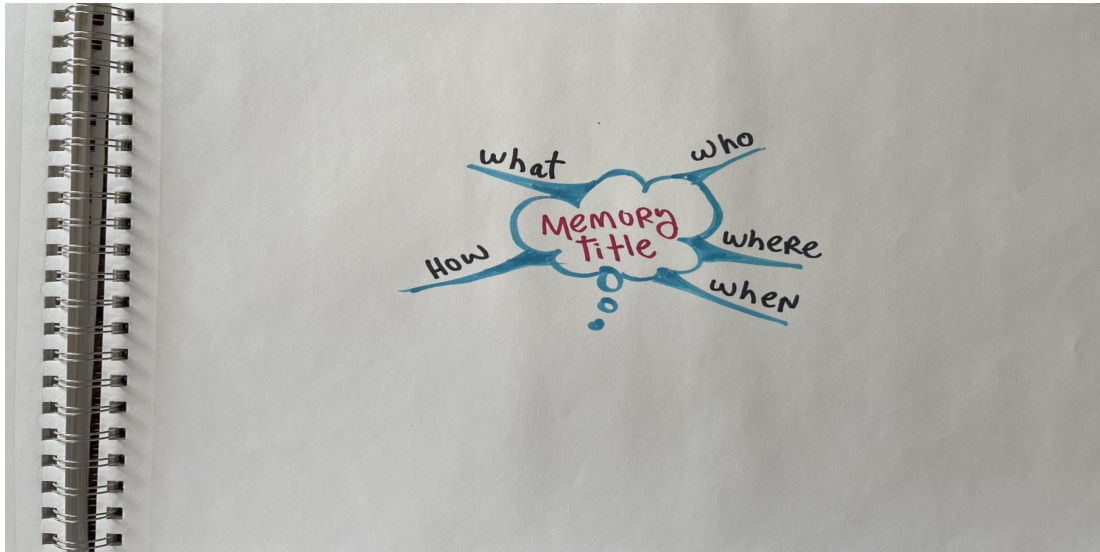 what
who
Memory
title
How
where
when